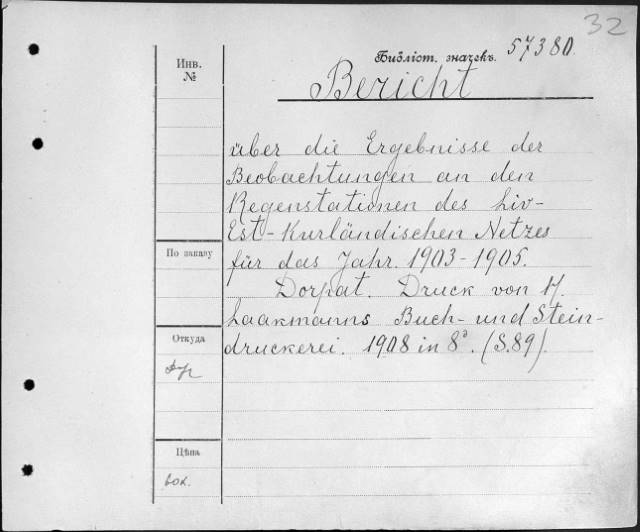 32
Библіот. значекъ. 57380.
Инв.
№
Bericht
über die Ergebnisse der
Beobachtungen an den
Regenstationen des Liv-
Est-Kurländischen Netzes
für das Jahr. 1903-1905.
По заказу
Dorpat. Druck von H.
Laakmanns Buch- und Stein-
Откуда
druckerei. 1908 in 8°. (S.89).
Цѣна